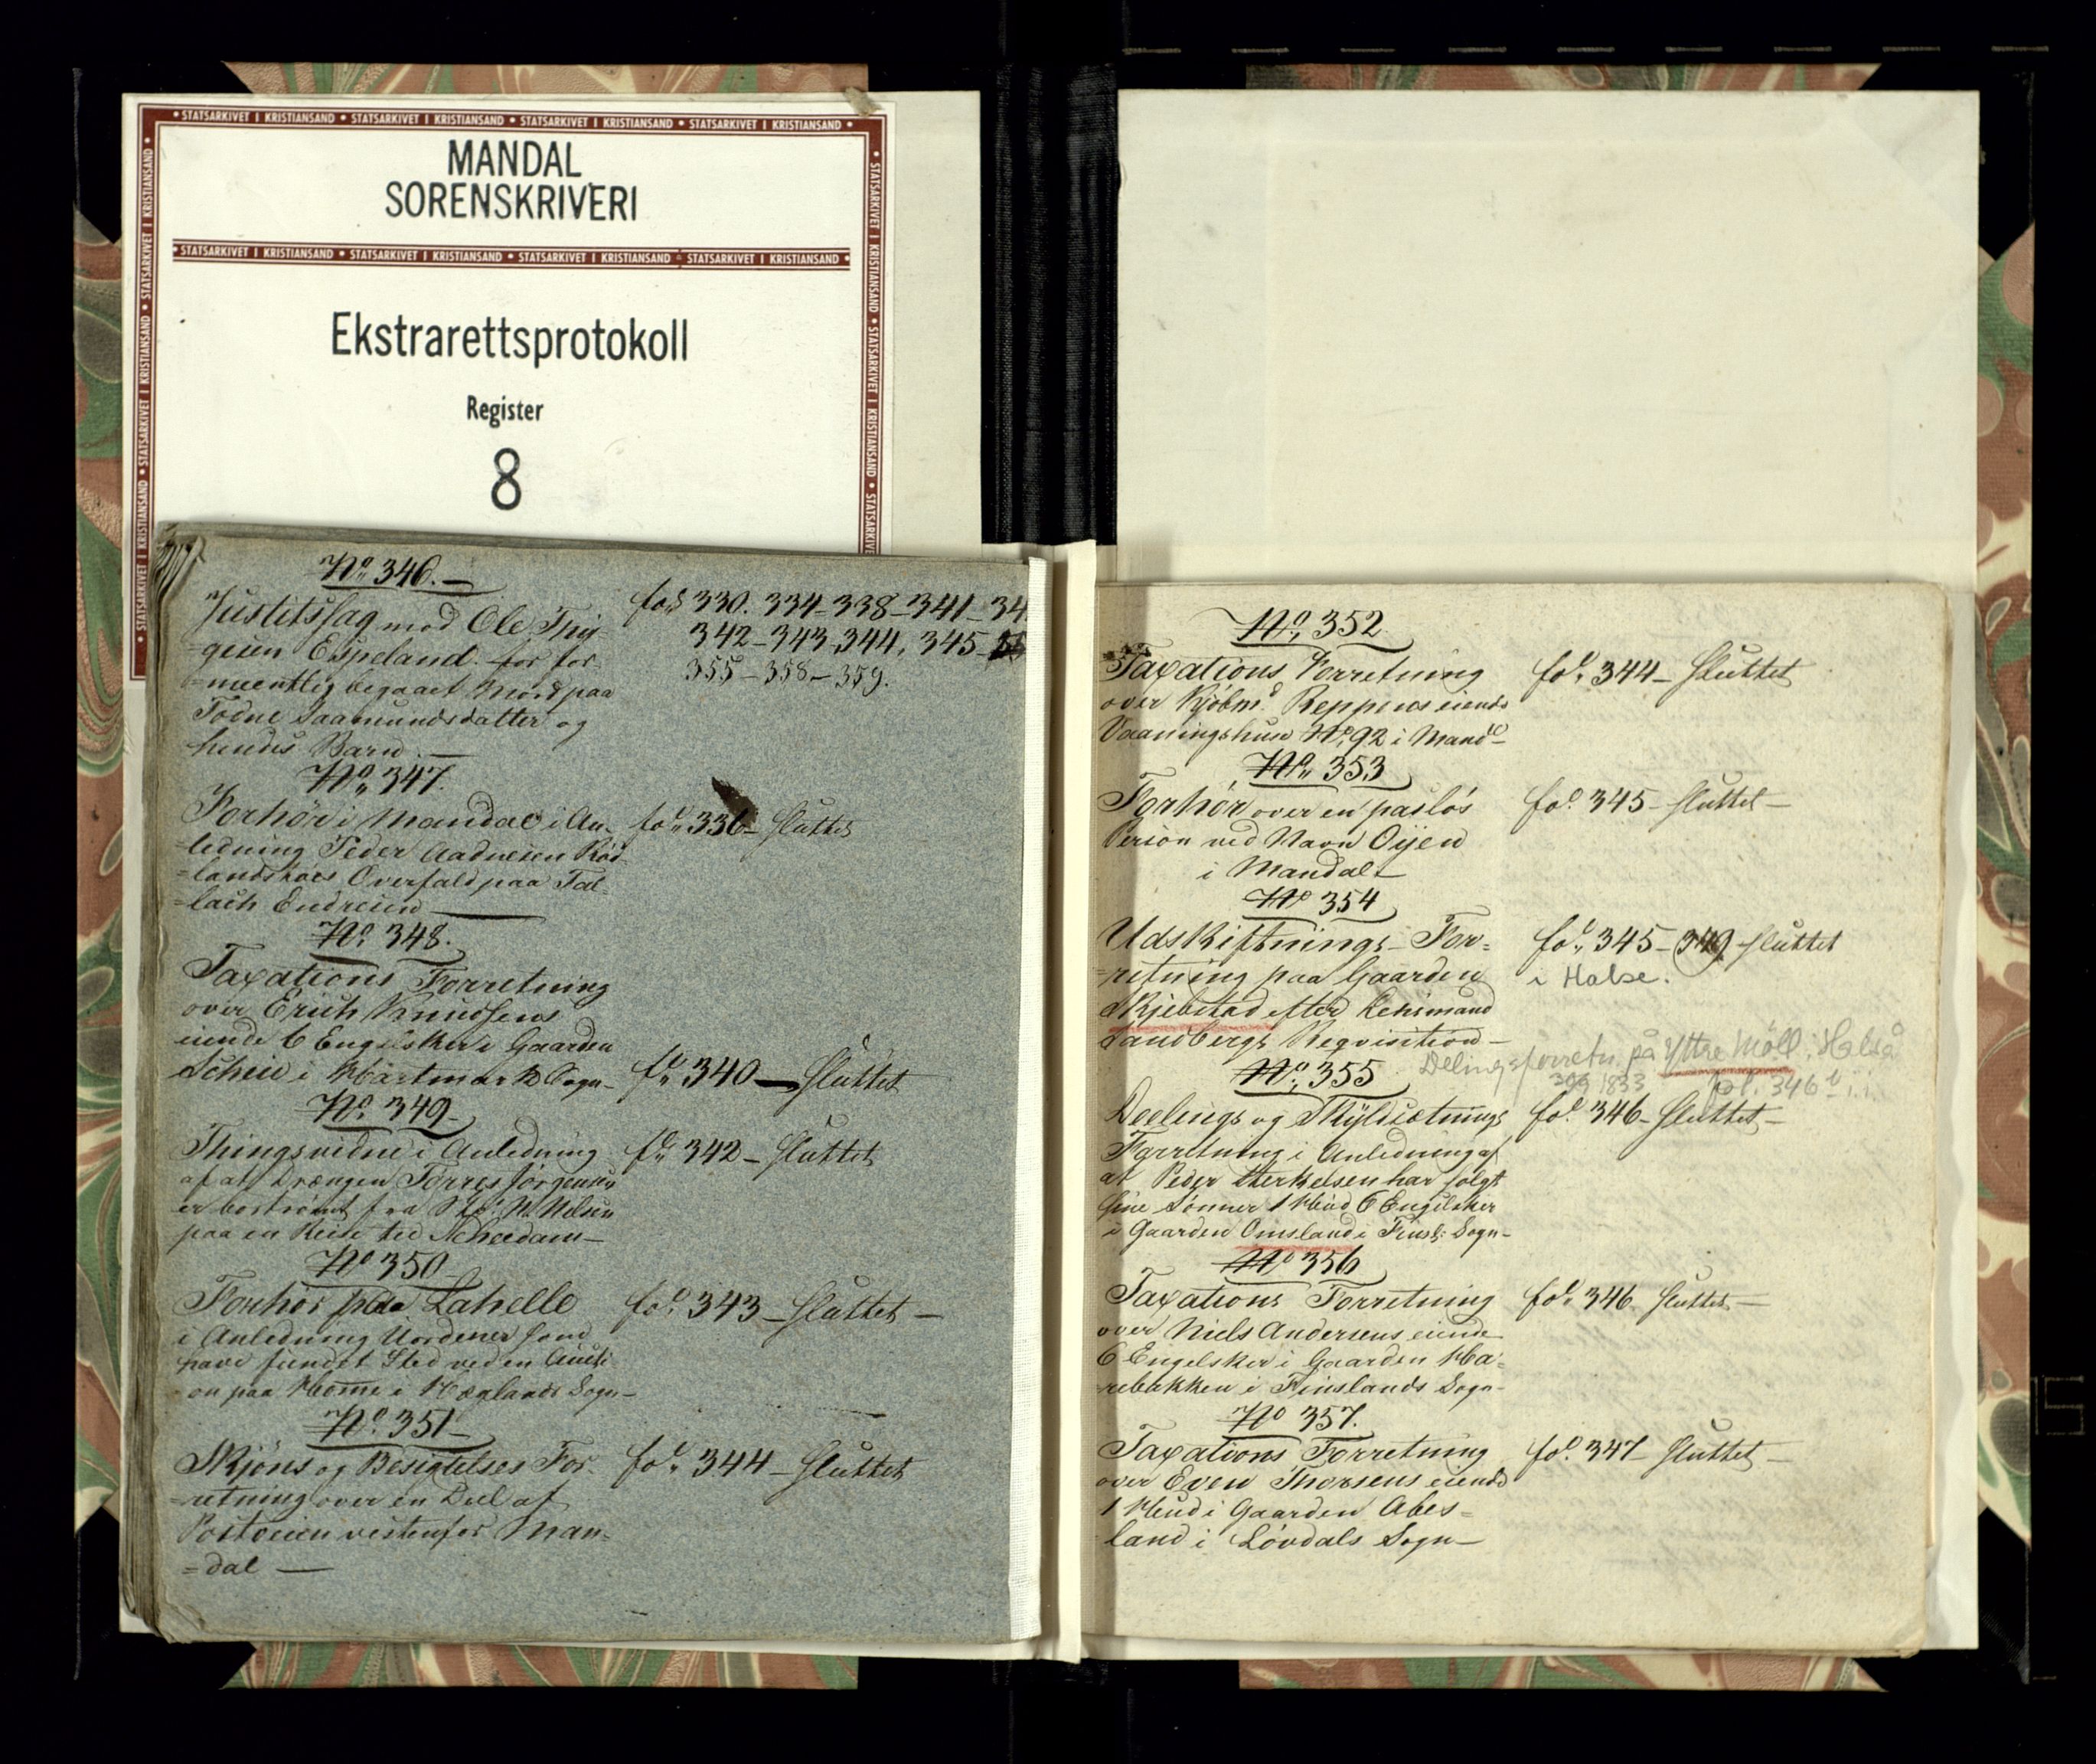 MANDAL
SORENSKRIVERI
Ekstrarettsprotokoll
Register
8
No 346.
Justitssag mod Ole Thj-
=gesen Espeland for for-
=meentlig begaaet Mord paa
Todne Saamundsdatter og
hendes Barn.
fol 330. 334-338-341-34
342-343-344, 345-
355-358-359.
No 347.
Forhör i Mandal i An-
ledning Peder Aadnesen
Overfald paa Tal-
lach Endresen
fol 336- Sluttet
No. 348.
Taxations Forretning
over Erich Knudsens
eiende 6 Engelsker i Gaarden
i Hartmark Sogn-
fol 340 - Sluttet
No. 349-
Thingsvidne i Anledning
af at Drængen Torres Jörgensen
er bortrömt fra N. Nilsen
paa en Reise til Schedam-
fol 342- Sluttet
No 350
Forhör paa Lahelle
i Anledning Uordener som
have fundet Sted ved en Aucti-
on paa Home i Sogn-
fol. 343- Sluttet -
No. 351-
Skjöns og Besigtelses For-
=retning over en Deel af
Postveien vestenfor Man-
=dal
fol. 344- Sluttet
No. 352
Taxations Forretning
over Kjöbmd Reppens eiende
Vaaningshuus No. 92 i Mandl-
fol. 344- Sluttet
No. 353
Forhör over en paslös
Person ved Navn Oijen
i Mandal-
fol. 345- Sluttet -
No 354
Udskiftnings- For=
retning paa Gaarden
Skjebstad efter Lensmand
Sandbergs Reqvisition-
fol. 345-349 Sluttet
i Halse.
Delingsforretn. på Yttre Möll i Halså
30/9 1833 fol. 346 b
No. 355
Deelings og Skyldsætnings
Forretning i Anledning af
at Peder Sterkelsen har solgt
sine Sönner 1 Huud 6 Engelsker
i Gaarden Omsland i Finsl: Sogn-
fol. 346- Sluttet-
No 356
Taxations Forretning
over Niels Andersens eiende
6 Engelsker i Gaarden Ha=
rebakken i Finslands Sogn-
fol. 346 Sluttet -
No 357.
Taxations Forretning
over Even Thorsens eiende
1 Huud i Gaarden Abes=
land i Lövdals Sogn-
fol. 347- Sluttet -